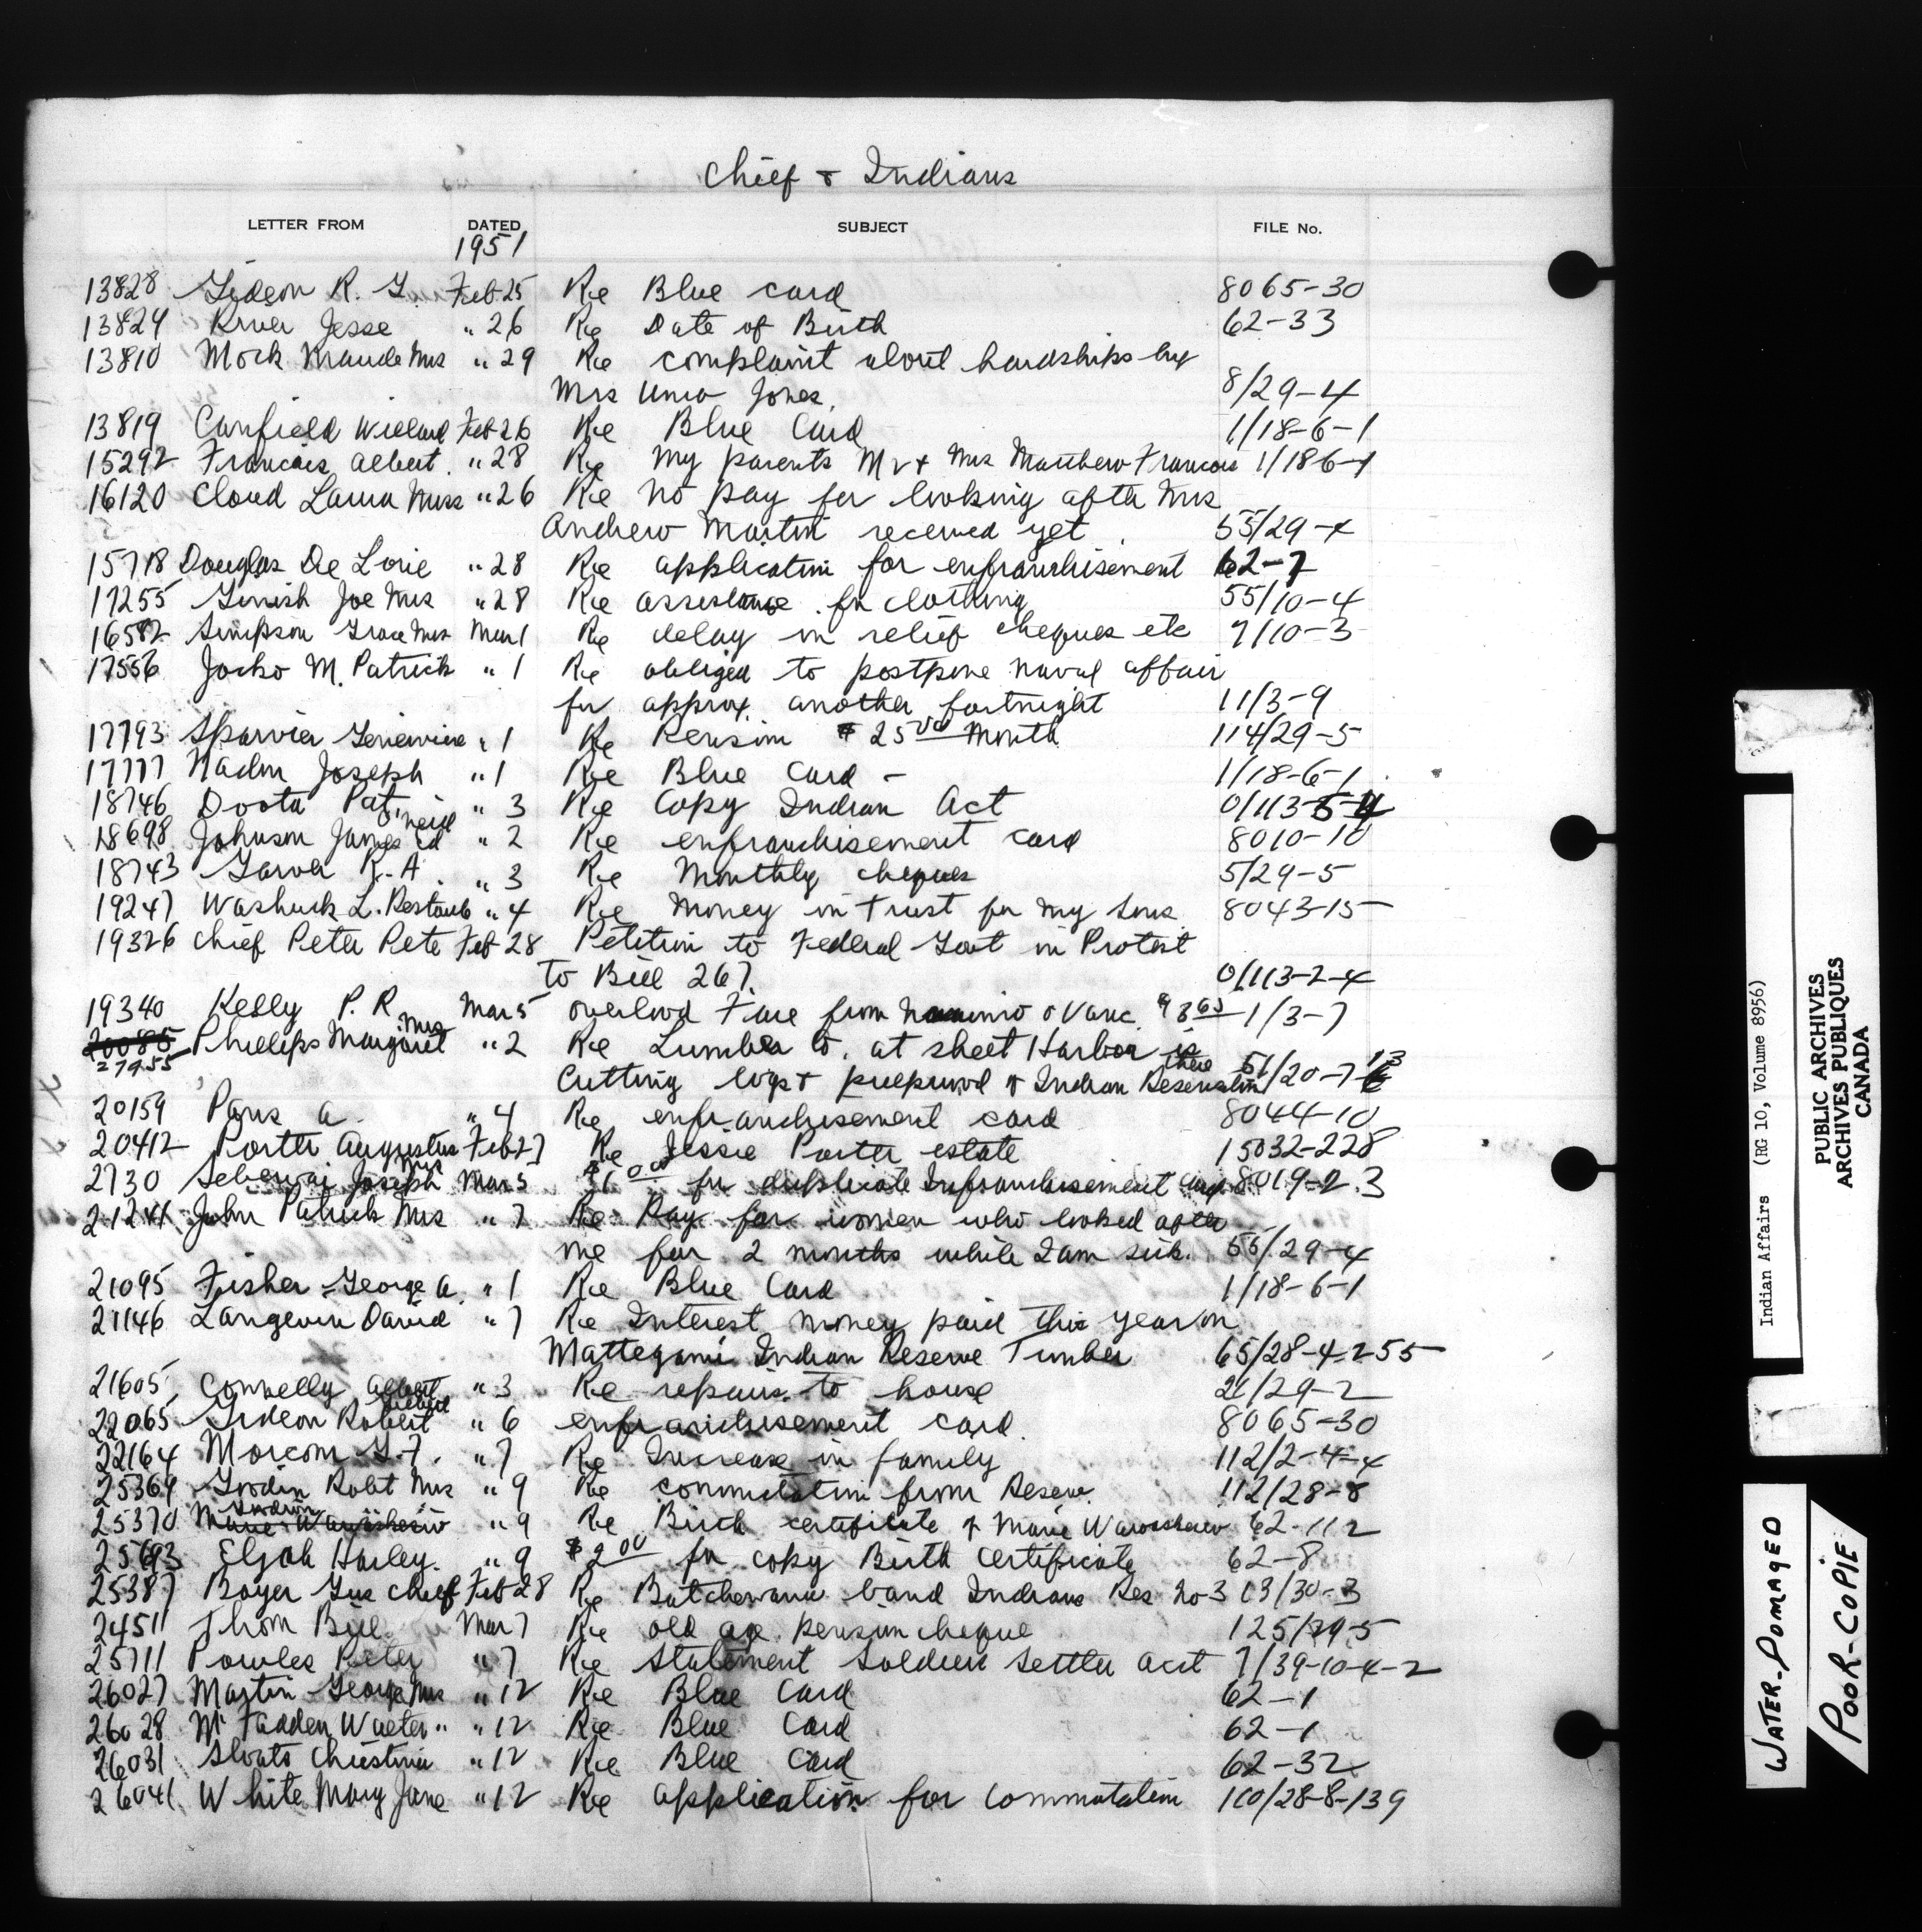 Chief & Indians
LETTER FROM DATED SUBJECT FILE No.
1951
13828 Gideon R. G. Feb 25 Re Blue card 8065-30
13824 River Jesse " 26 Re Date of Birth 62-33
13810 Mock Maude Mrs " 29 Re complaint about hardships by
Mrs Jones. 8/29-4
13819 Canfield Willard Feb 26 Re Blue Card 1/18-6-1
15292 Francois Albert. " 28 Re my parents Mr & Mrs Matthew Francois 1/18 6-1
16120 Cloud Laura Miss " 26 Re no pay for looking after Mrs
Andrew Martin received yet 55/29-4
15718 Douglas De Lorie " 28 Re application for enfranchisement 62-7
17255 Joe Mrs " 28 Re assistance for clothing 55/10-4
16582 Simpson Grace Mrs Mar 1 Re delay in relief cheques etc 7/10-3
17556 Jocko M. Patrick " 1 Re obliged to postpone naval affair
for approx. another fortnight 11/3-9
17793 Sparvier " 1 Re Pension $25 00 Month 114/29-5
17777 Joseph " 1 Re Blue Card - 1/18-6-1
18746 Pat. " 3 Re Copy Indian Act 0/113-5-4
O'neil
18698 Johnson James Ed " 2 Re enfranchisement card 8010-10
18743 R. A. " 3 Re Monthly cheques 5/29-5
19247 Washuck L. " 4 Re Money in Trust for my sons 8043-15
19326 Chief Peter Pete Feb 28 Petition to Federal Govt in Protest
to Bill 267. 0/113-2-4
19340 Kelly P. R. Mar 5 Fare from & Vanc. 1/3-7
20085 Phillips Margaret Mrs " 2 Re Lumber Co. at sheet Harbor is
27955 Cutting logs & pulpwood & Indian Reservation there 51/20-7-13
20159 Paris A. " 4 Re enfranchisement card 8044-10
20412 Porter Augustus Feb 27 Re Jessie Porter estate 15032-228
2730 Joseph Mrs Mar 5 $1 00 for duplicate Infranchisement card 8019-2.3
21241 John Patrick Mrs " 7 Re Pay for women who looked after
me for 2 months while I am sick. 55/29-4
21095 Fisher George A. " 1 Re Blue Card 1/18-6-1
21146 Langevin David " 7 Re Interest money paid this year on
Mattegami Indian Reserve Timber 65/28-4-255
21605 Connelly Albert " 3 Re repairs to house 21/29-2
22065 Gideon Robert " 6 enfranchisement card. 8065-30
22164 Morcom G. F. " 7 Re Increase in family 112/2-4-4
25364 Robt Mrs " 9 Re commutation from Reserve. 112/28-8
25370 Marie " 9 Re Birth certificate of Marie 62-112
25693 Elijah Harley. " 9 $2 00 for copy Birth Certificate 62-8
25387 Boyer Gus Chief Feb 28 Re Batchewana band Indians Res no 3 13/30-3
24511 Thom Bill. Mar 7 Re old age pension cheque 125/29-5
25711 Powles Peter " 7 Re Statement Soldiers Settler act 7/39-10-4-2
26027 Martin George Mrs " 12 Re Blue Card 62-1
26028 McFadden Walter " " 12 Re Blue Card 62-1
26031 Christina " 12 Re Blue Card 62-32
26041 White Mary Jane " 12 Re application for commutation 110/28-8-139
Indian Affairs (RG 10, Volume 8956)
PUBLIC ARCHIVES
ARCHIVES PUBLIQUES
CANADA
WATER-DOMAGED
POOR-COPIE